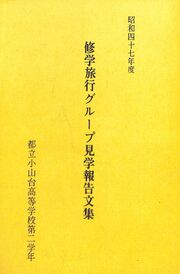 昭和四十七年度
修学旅行グループ見学報告文集
都立小山台高等学校第二学年